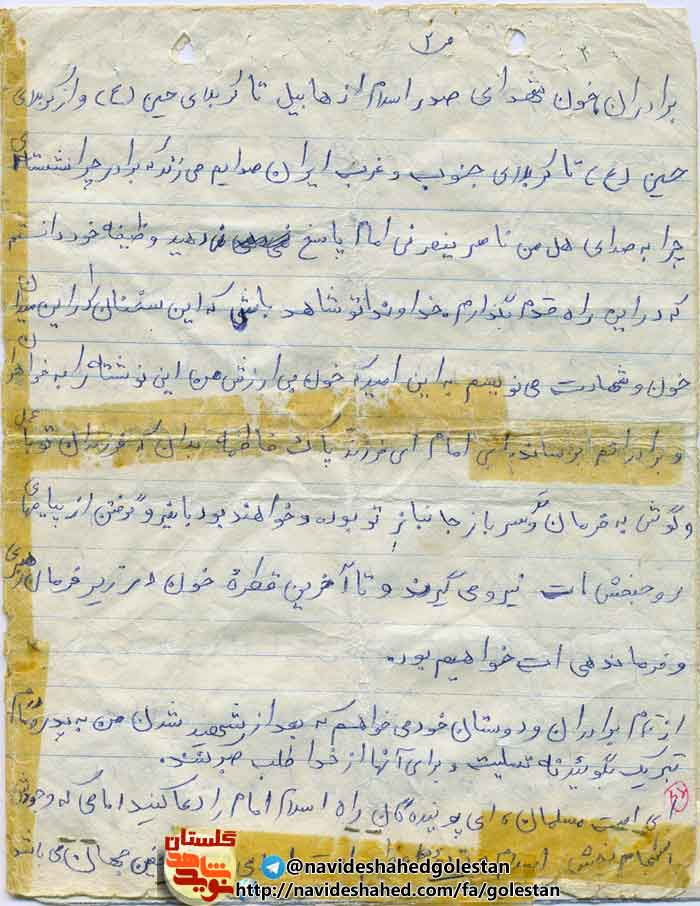 ص ۲
۲
برادران خون شهدای صدر اسلام از هابیل تا کربلای حسین (ع) و از کربلای
حسین (ع) تا کربلای جنوب و غرب ایران صدایم می زند که برادر چرا نشسته‌ای
چرا به صدای هل من ناصر ینصرنی امام پاسخ نمی دهید وظیفه خود دانستم
که در این راه قدم بگذارم. خداوندا تو شاهد باش که این سخنان را از این میدان
خون و شهادت می نویسم به این امید که خون بی ارزش من این نوشته را به خواهران
و برادرانم برساند. ای امام ای فرزند پاک فاطمه بدان که فرزندان تو با عمل
و گوش به فرمان تو سرباز جانباز تو بوده و خواهند بود با نیرو گرفتن از پیامهای
روحبخش ات نیرو می گیرند و تا آخرین قطرهٔ خون در زیر فرمان رهبری
و فرماندهی ات خواهیم بود.
از تمام برادران و دوستان خود می خواهم که بعد از شهید شدن من به پدر و مادرم
تبریک بگوئید نه تسلیت و برای آنها از خدا طلب صبر کنند.
ای امت مسلمان، ای پوینده گان راه اسلام امام را دعا کنید امامی که وجودش
اسلام جهان می باشد
گلستان
نوید شاهد
@navideshahedgolestan
http://navideshahed.com/fa/golestan